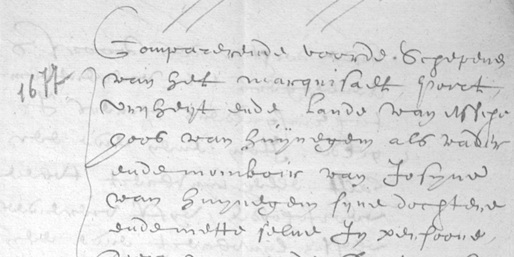 Comparerende voorde Schepenen
1677 van het marquisaet poort
vryheyt ende Lande van Assche
Joos van huynegem als vader
ende momboir van Josyne
van huynegem syne dochtere
ende mette selve In persoone